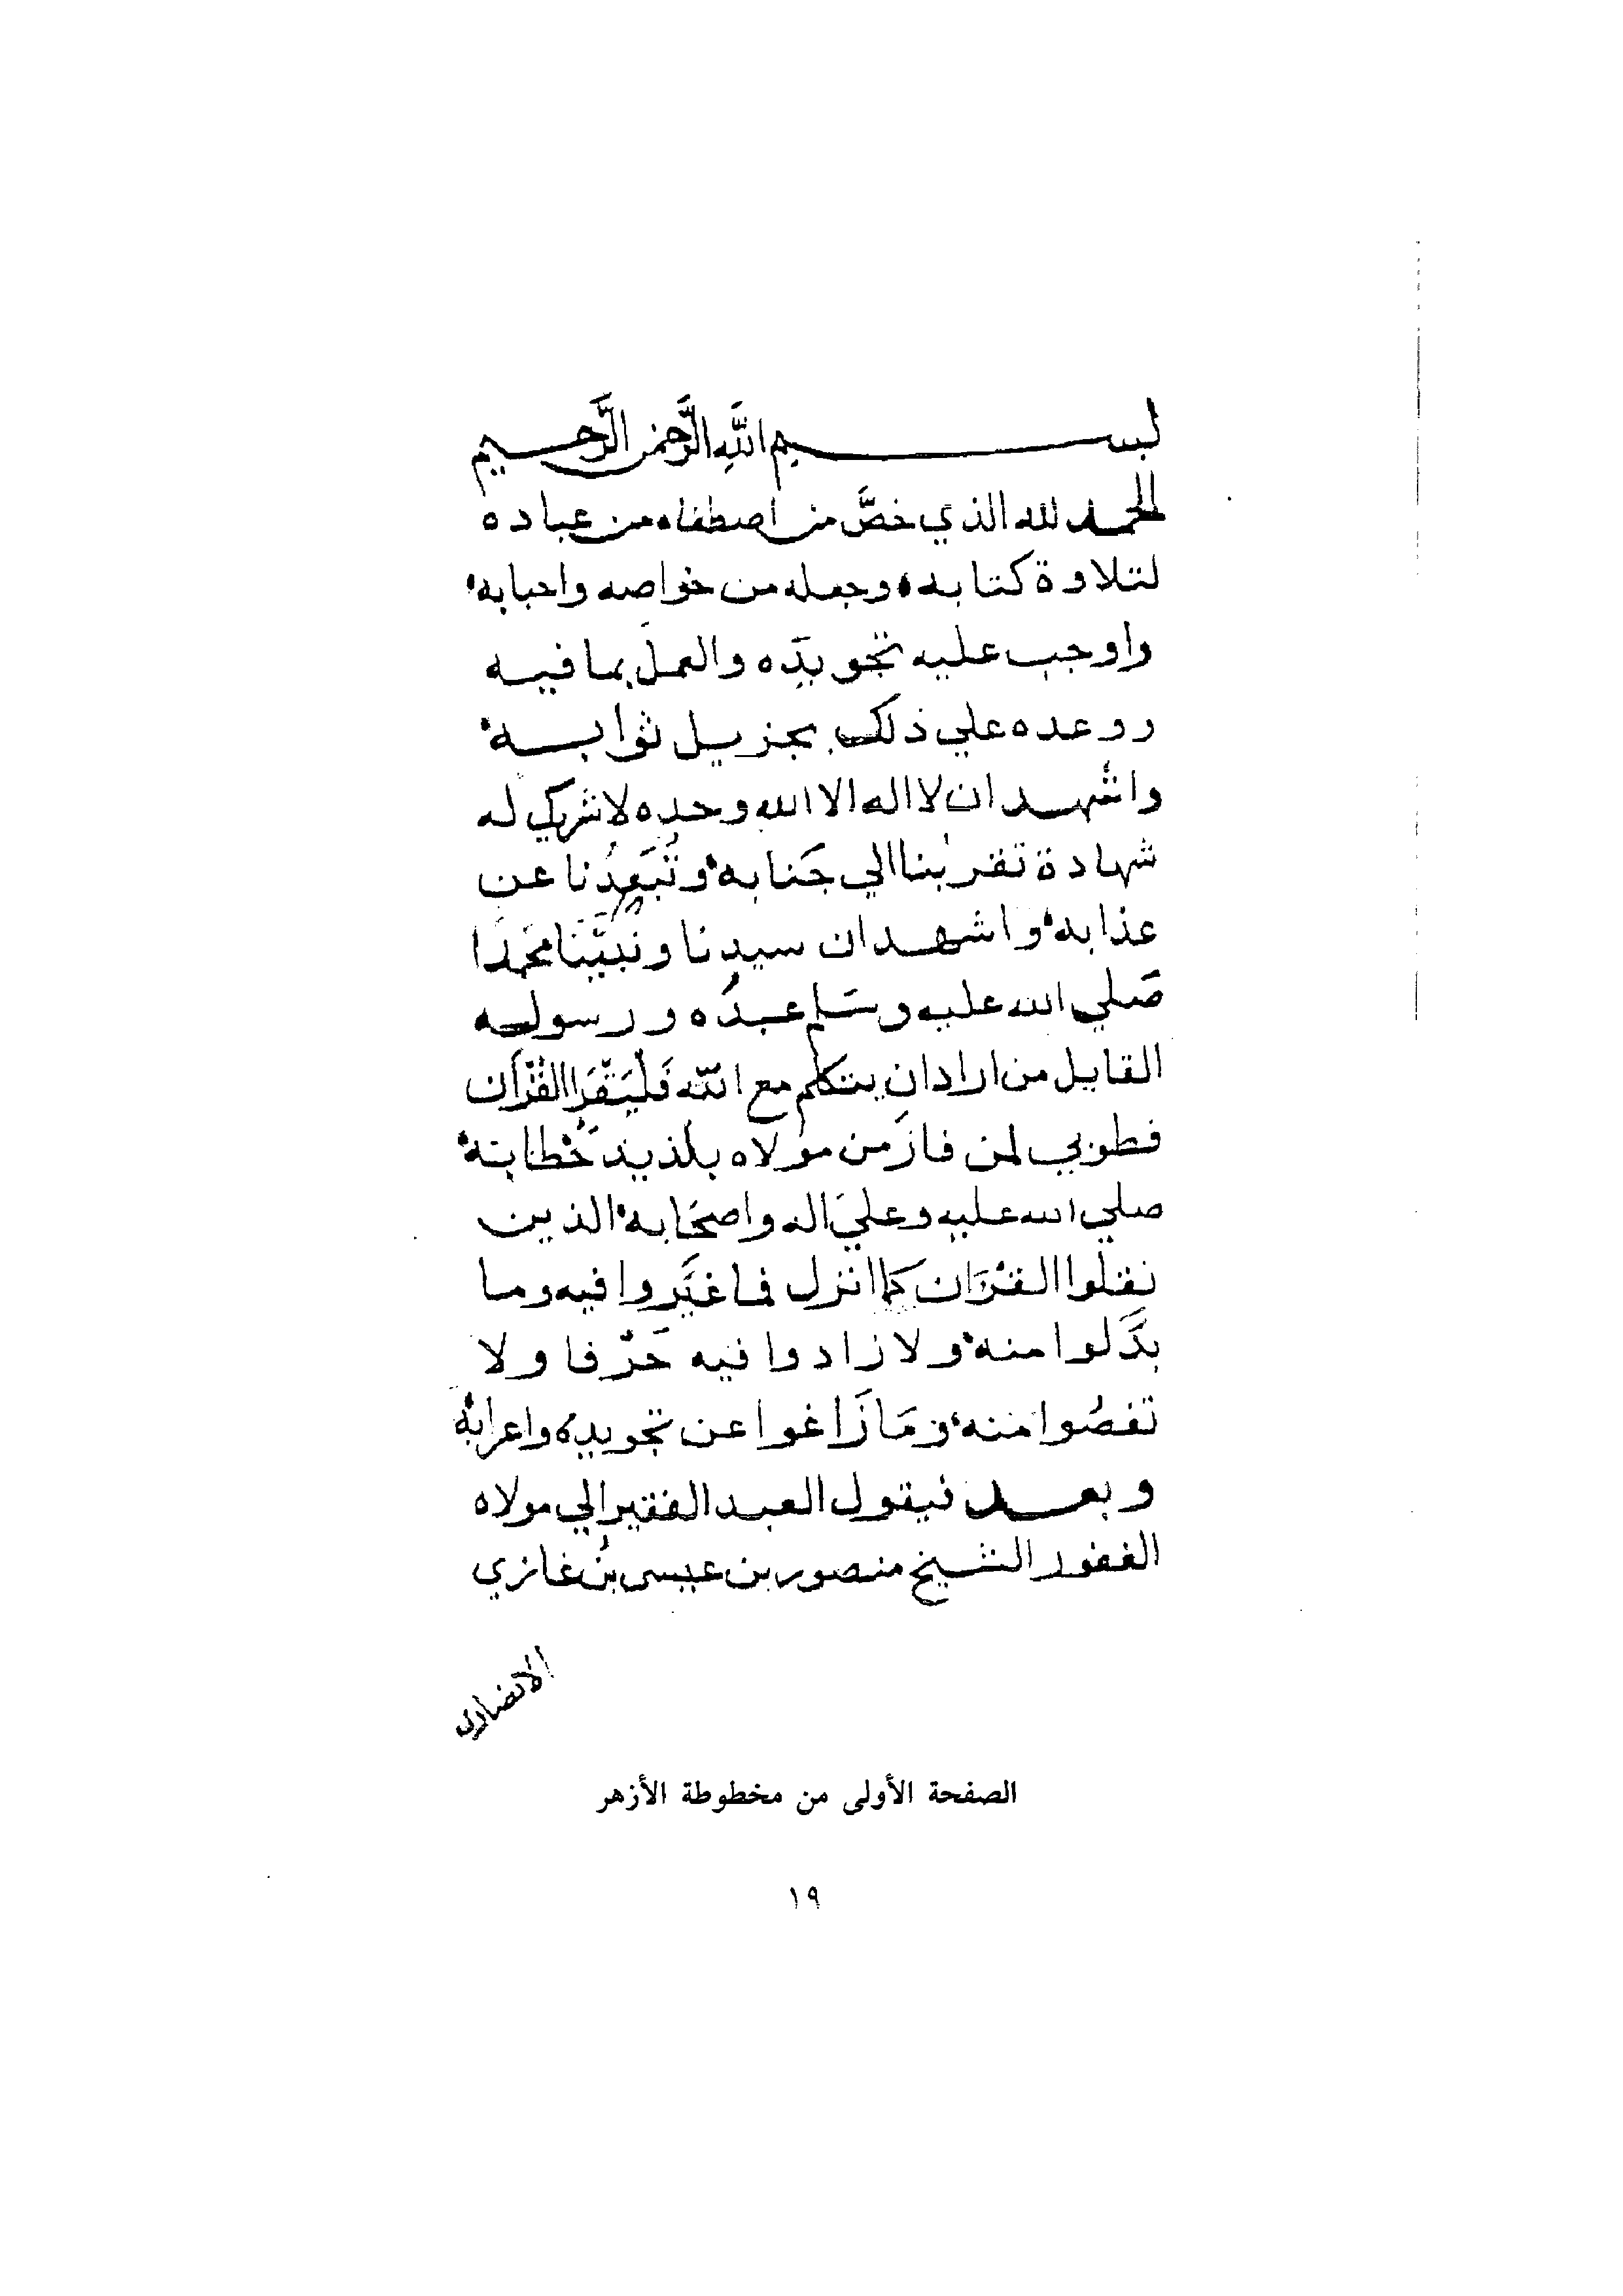 بســـــم اللَّهِ الرَّحمٰن الرَّحـــيم
الحمد لله الذي خصَّ من اصطفاه من عباده
لتلاوة كتابه وجعله من خواصه واحبابه
واوجب عليه تجويدَه والعملَ بما فيه
ووعده علي ذلك بجزيل ثوابه
واشهد ان لا اله الا الله وحده لا شريك له
شهادة تقربُنا الي جَنابه وتُبَعِدُنا عن
عذابه واشهد ان سيدنا ونَبيَّنا محمَدًا
صَلي الله عليه وسَلم عبدُه ورسوله
القايل من اراد ان يتكلم مع اللّه فَلْيَقْرَا القُرْآن
فطوبي لمن فازَ من مولاه بلَذيذ خُطابه
صلي الله عليه وعليَ اله واصحَابه الذين
نقلُوا القُرَان كما انزل فما غيَّروا فيه وما
بدَّلوا منه ولا زادوا فيه حَرْفا ولا
نقصُوا منه ومَا زَاغوا عن تجويده واعرابه
وبعد فيقول العبد الفقير الي مولاه
الغفور الشيخ منصور بن عيسى بن غازي
الانصاري
الصفحة الأولى من مخطوطة الأزهر
١٩